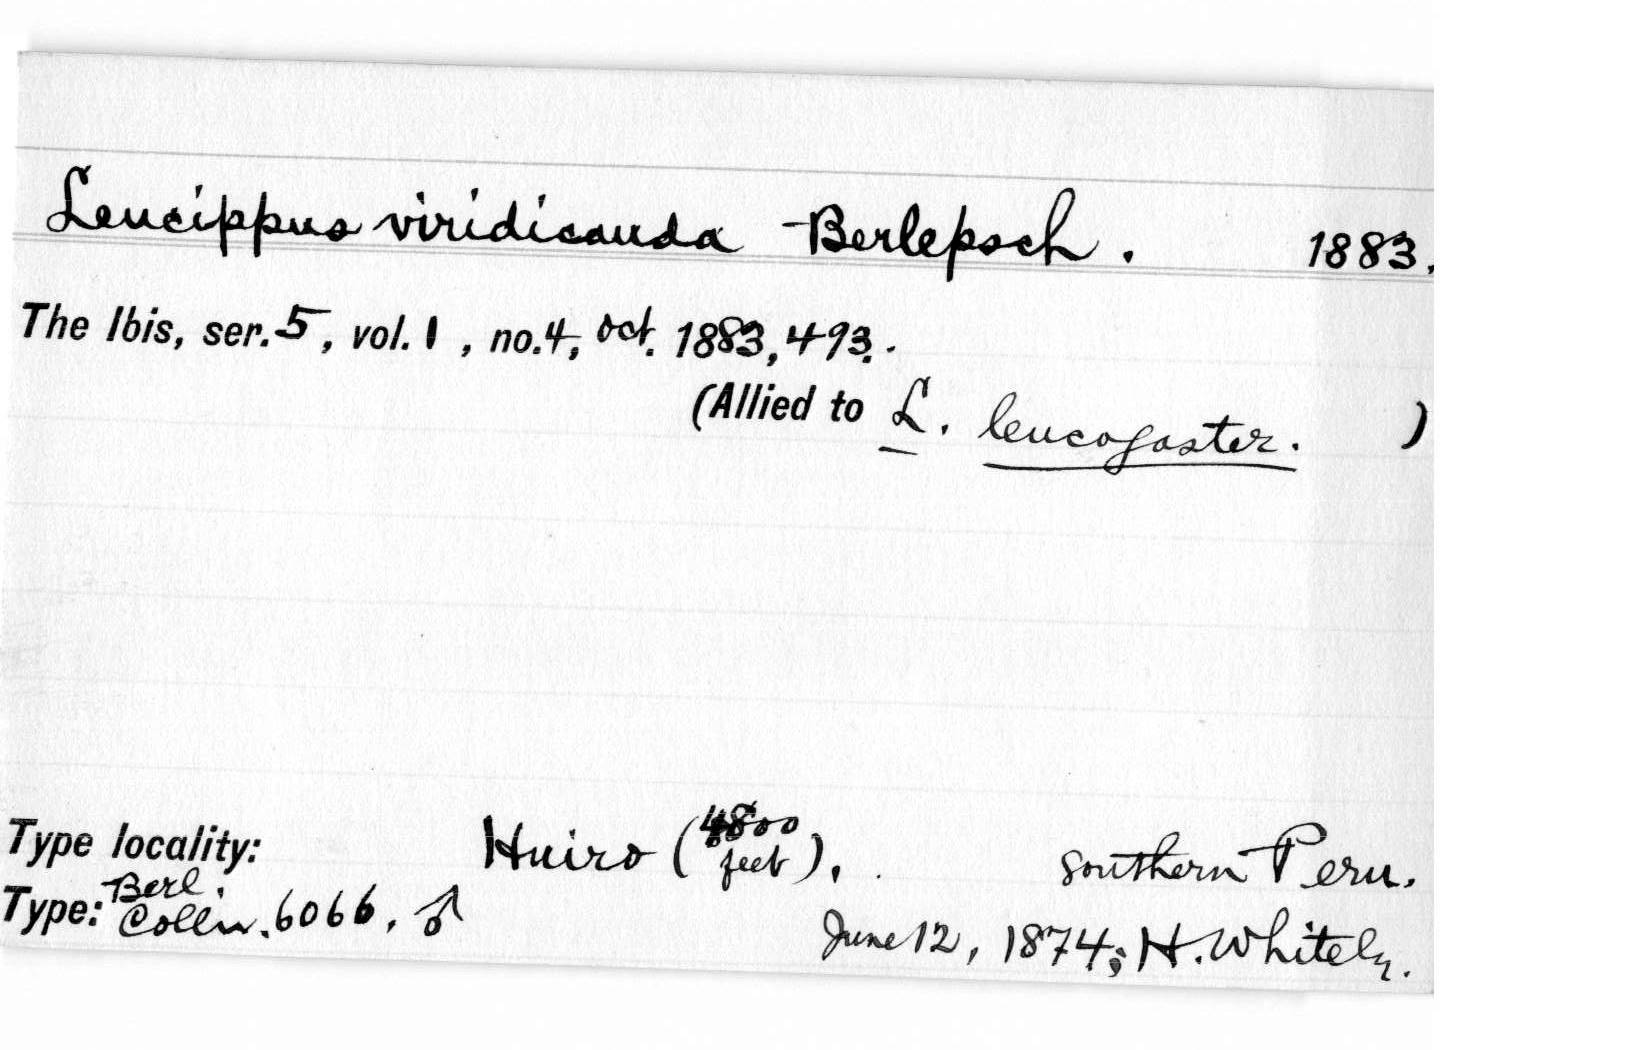 Leucippus viridicauda Berlepsch. 1883.
The Ibis, ser. 5, vol. 1, no. 4, Oct. 1883, 493.
(Allied to L. leucogaster. )
Type locality: Huiro (4800 feet), . Southern Peru.
Type: Berl. Colln. 6066, ♂ June 12, 1874; H. Whitely.